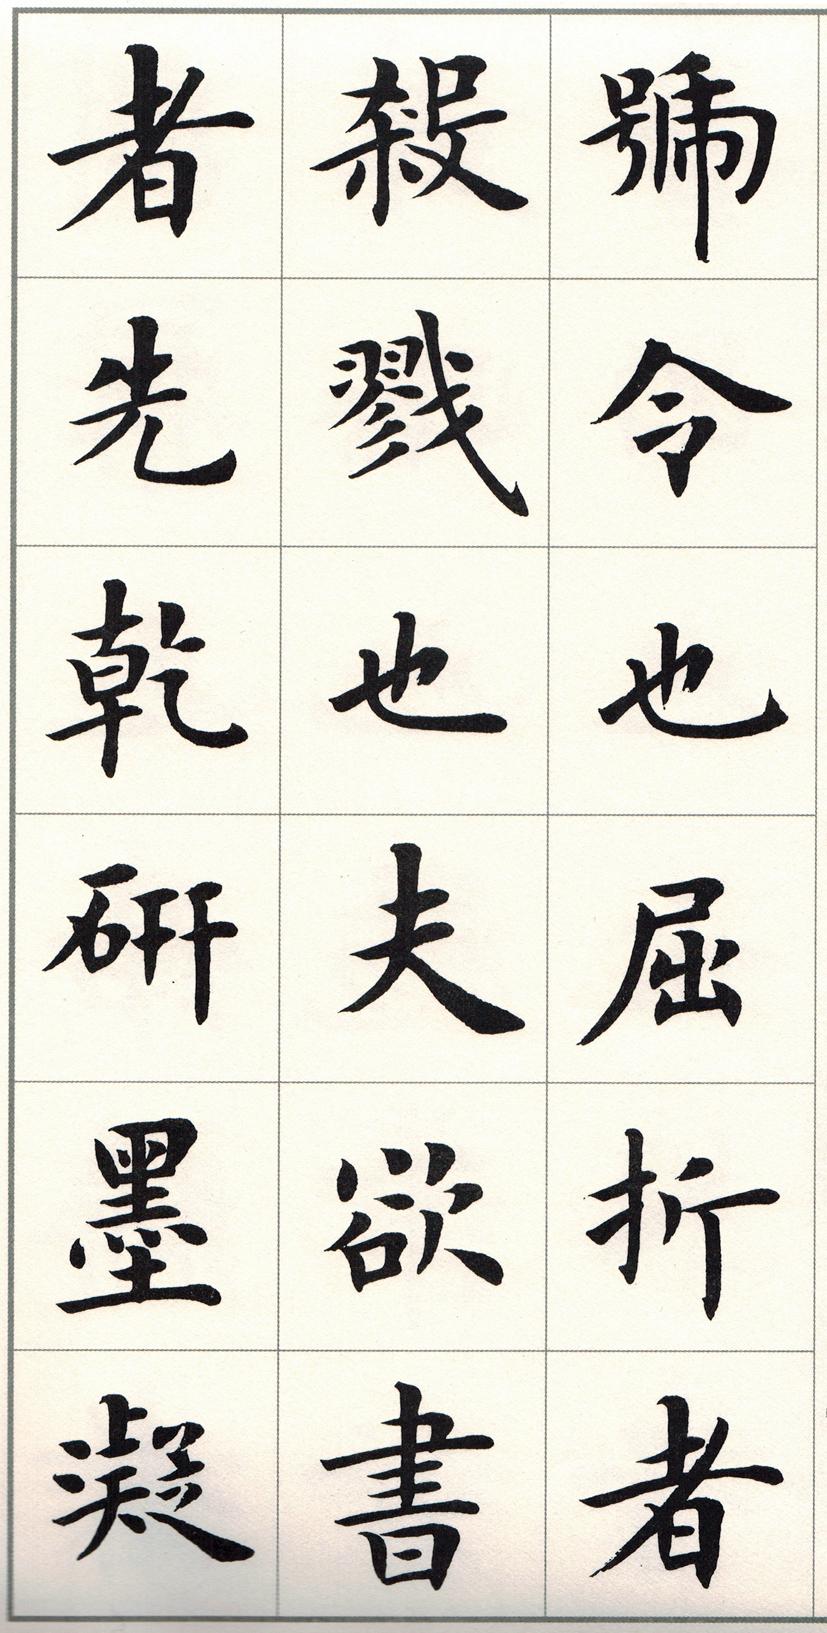 號令也屈折者
殺戮也夫欲書
者先乾研墨凝